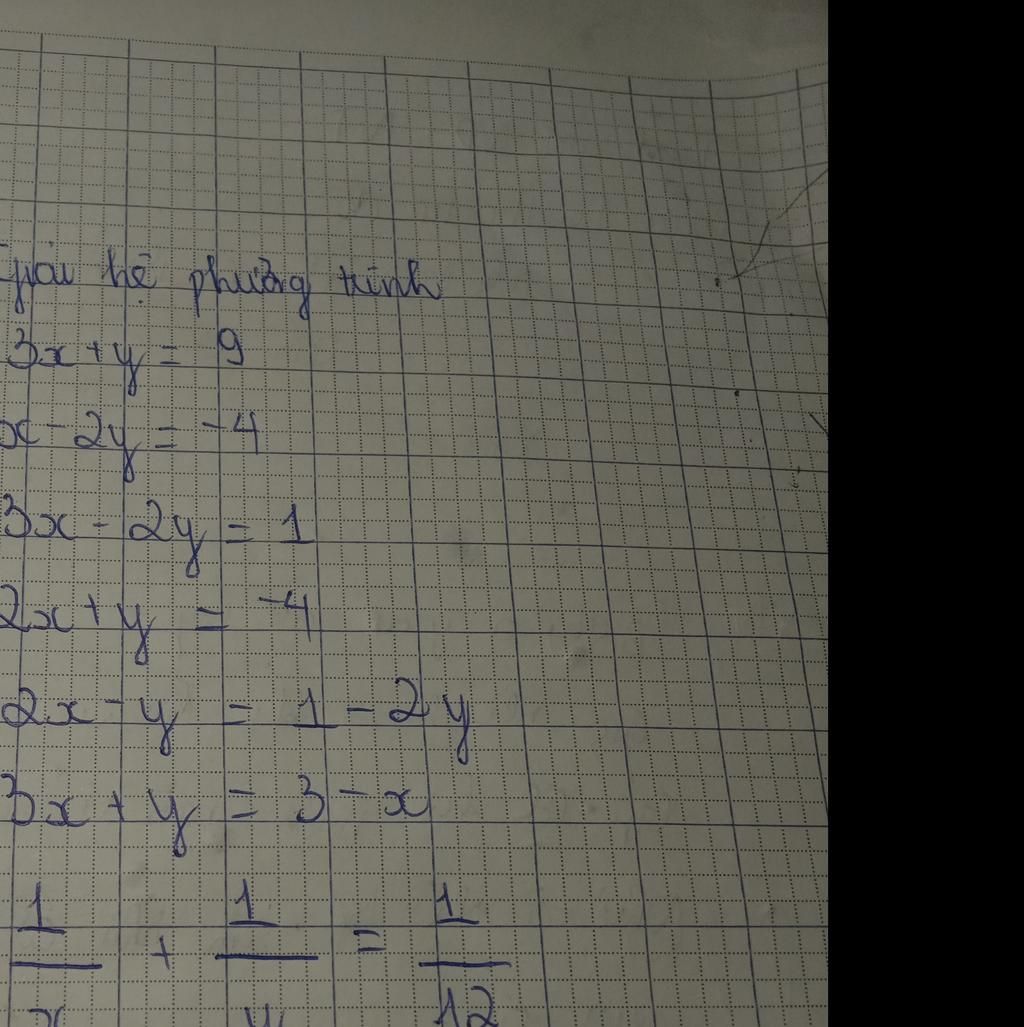 Giải hệ phương trình
3x + y = 9
x - 2y = -4
3x - 2y = 1
2x + y = -4
2x - y = 1 - 2y
3x + y = 3 - x
1/x + 1/y = 1/12